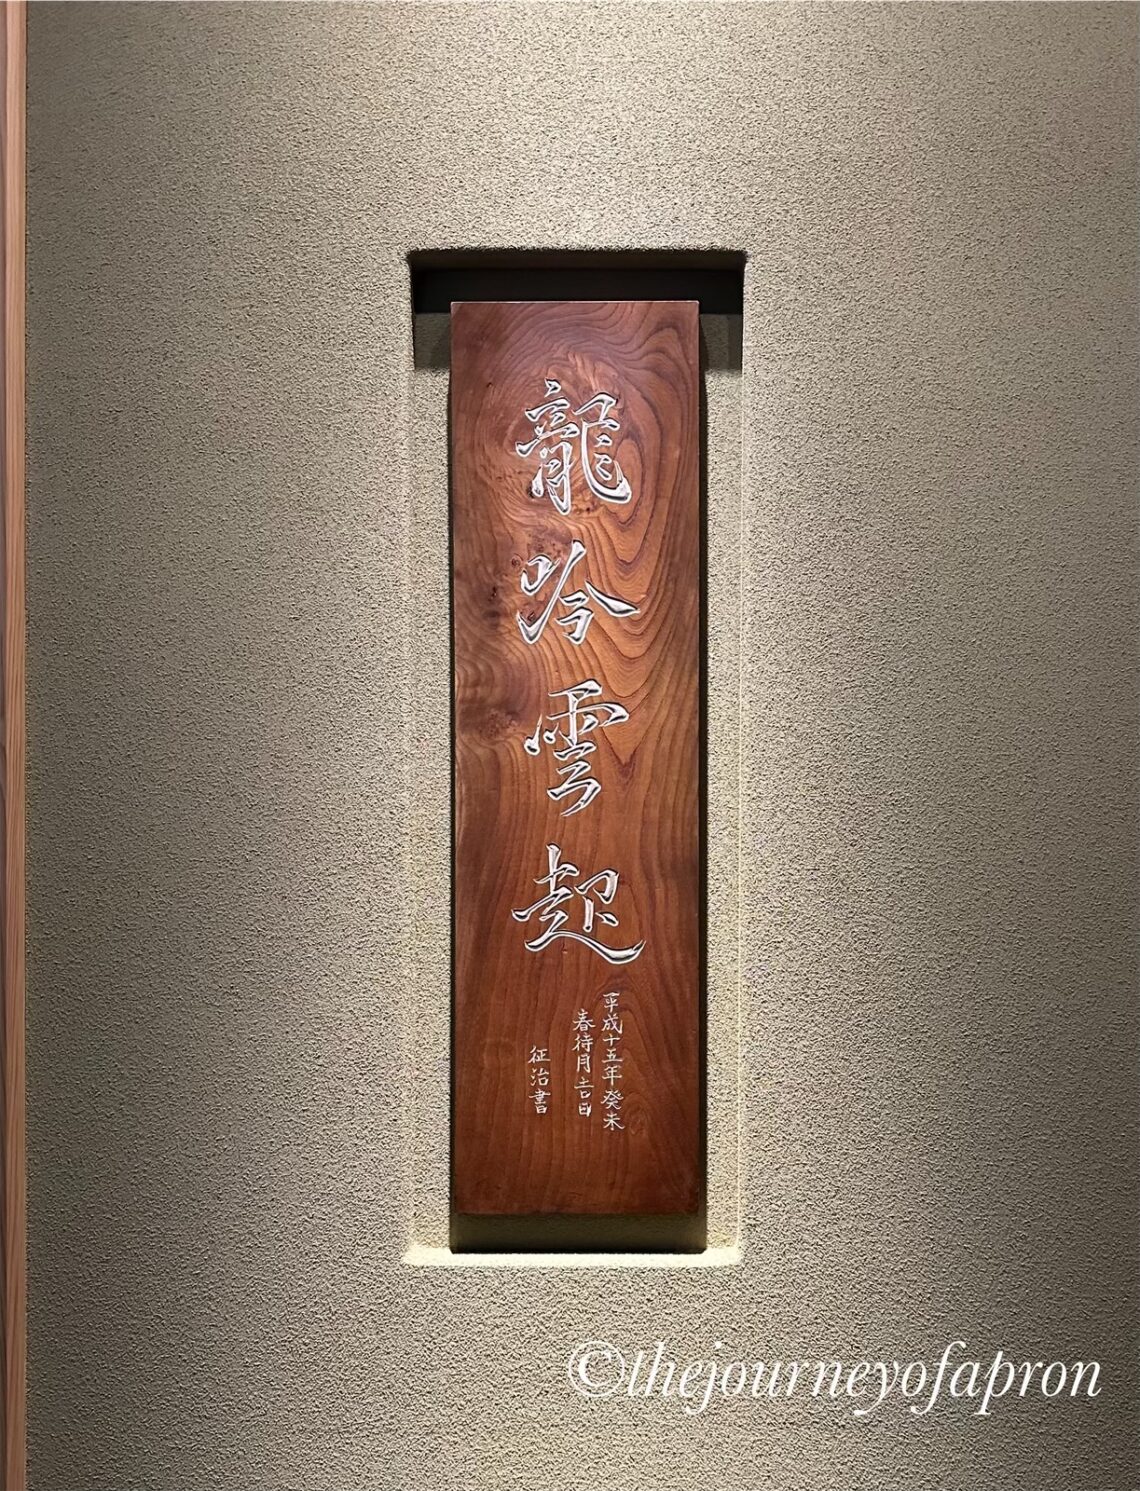 龍吟雲起
平成十五年癸未
春待月吉日
征治書
©thejourneyofapron